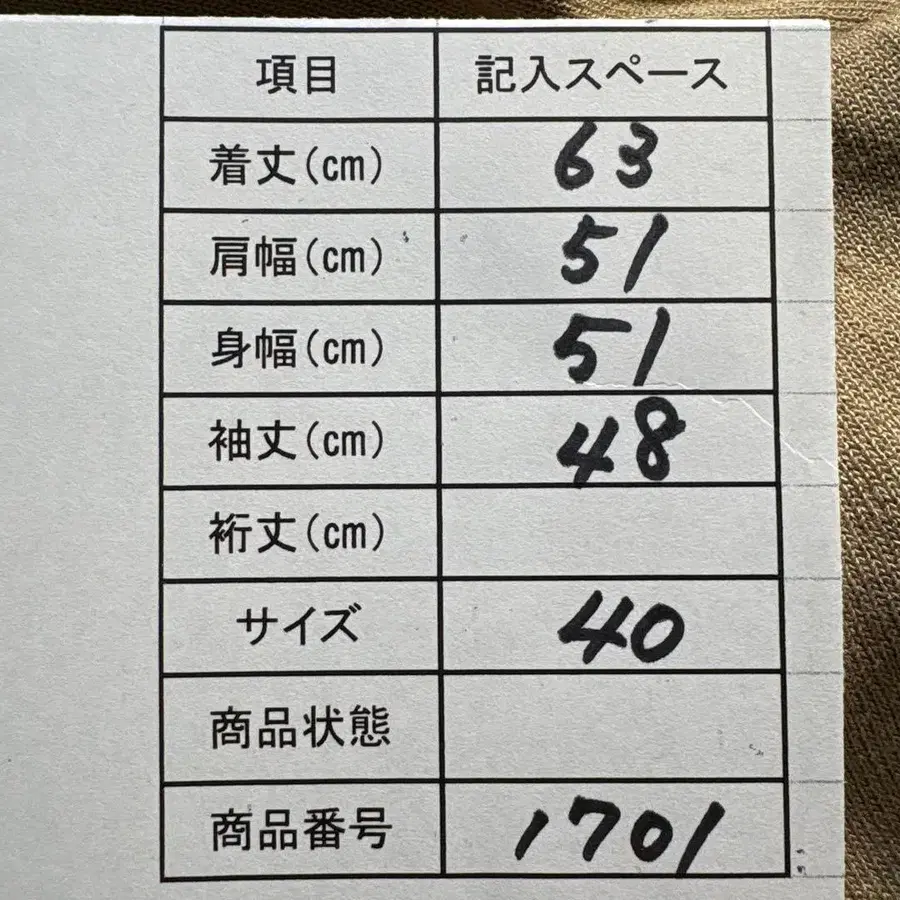 項目 記入スペース
着丈(cm) 63
肩幅(cm) 51
身幅(cm) 51
袖丈(cm) 48
裄丈(cm)
サイズ 40
商品状態
商品番号 1701